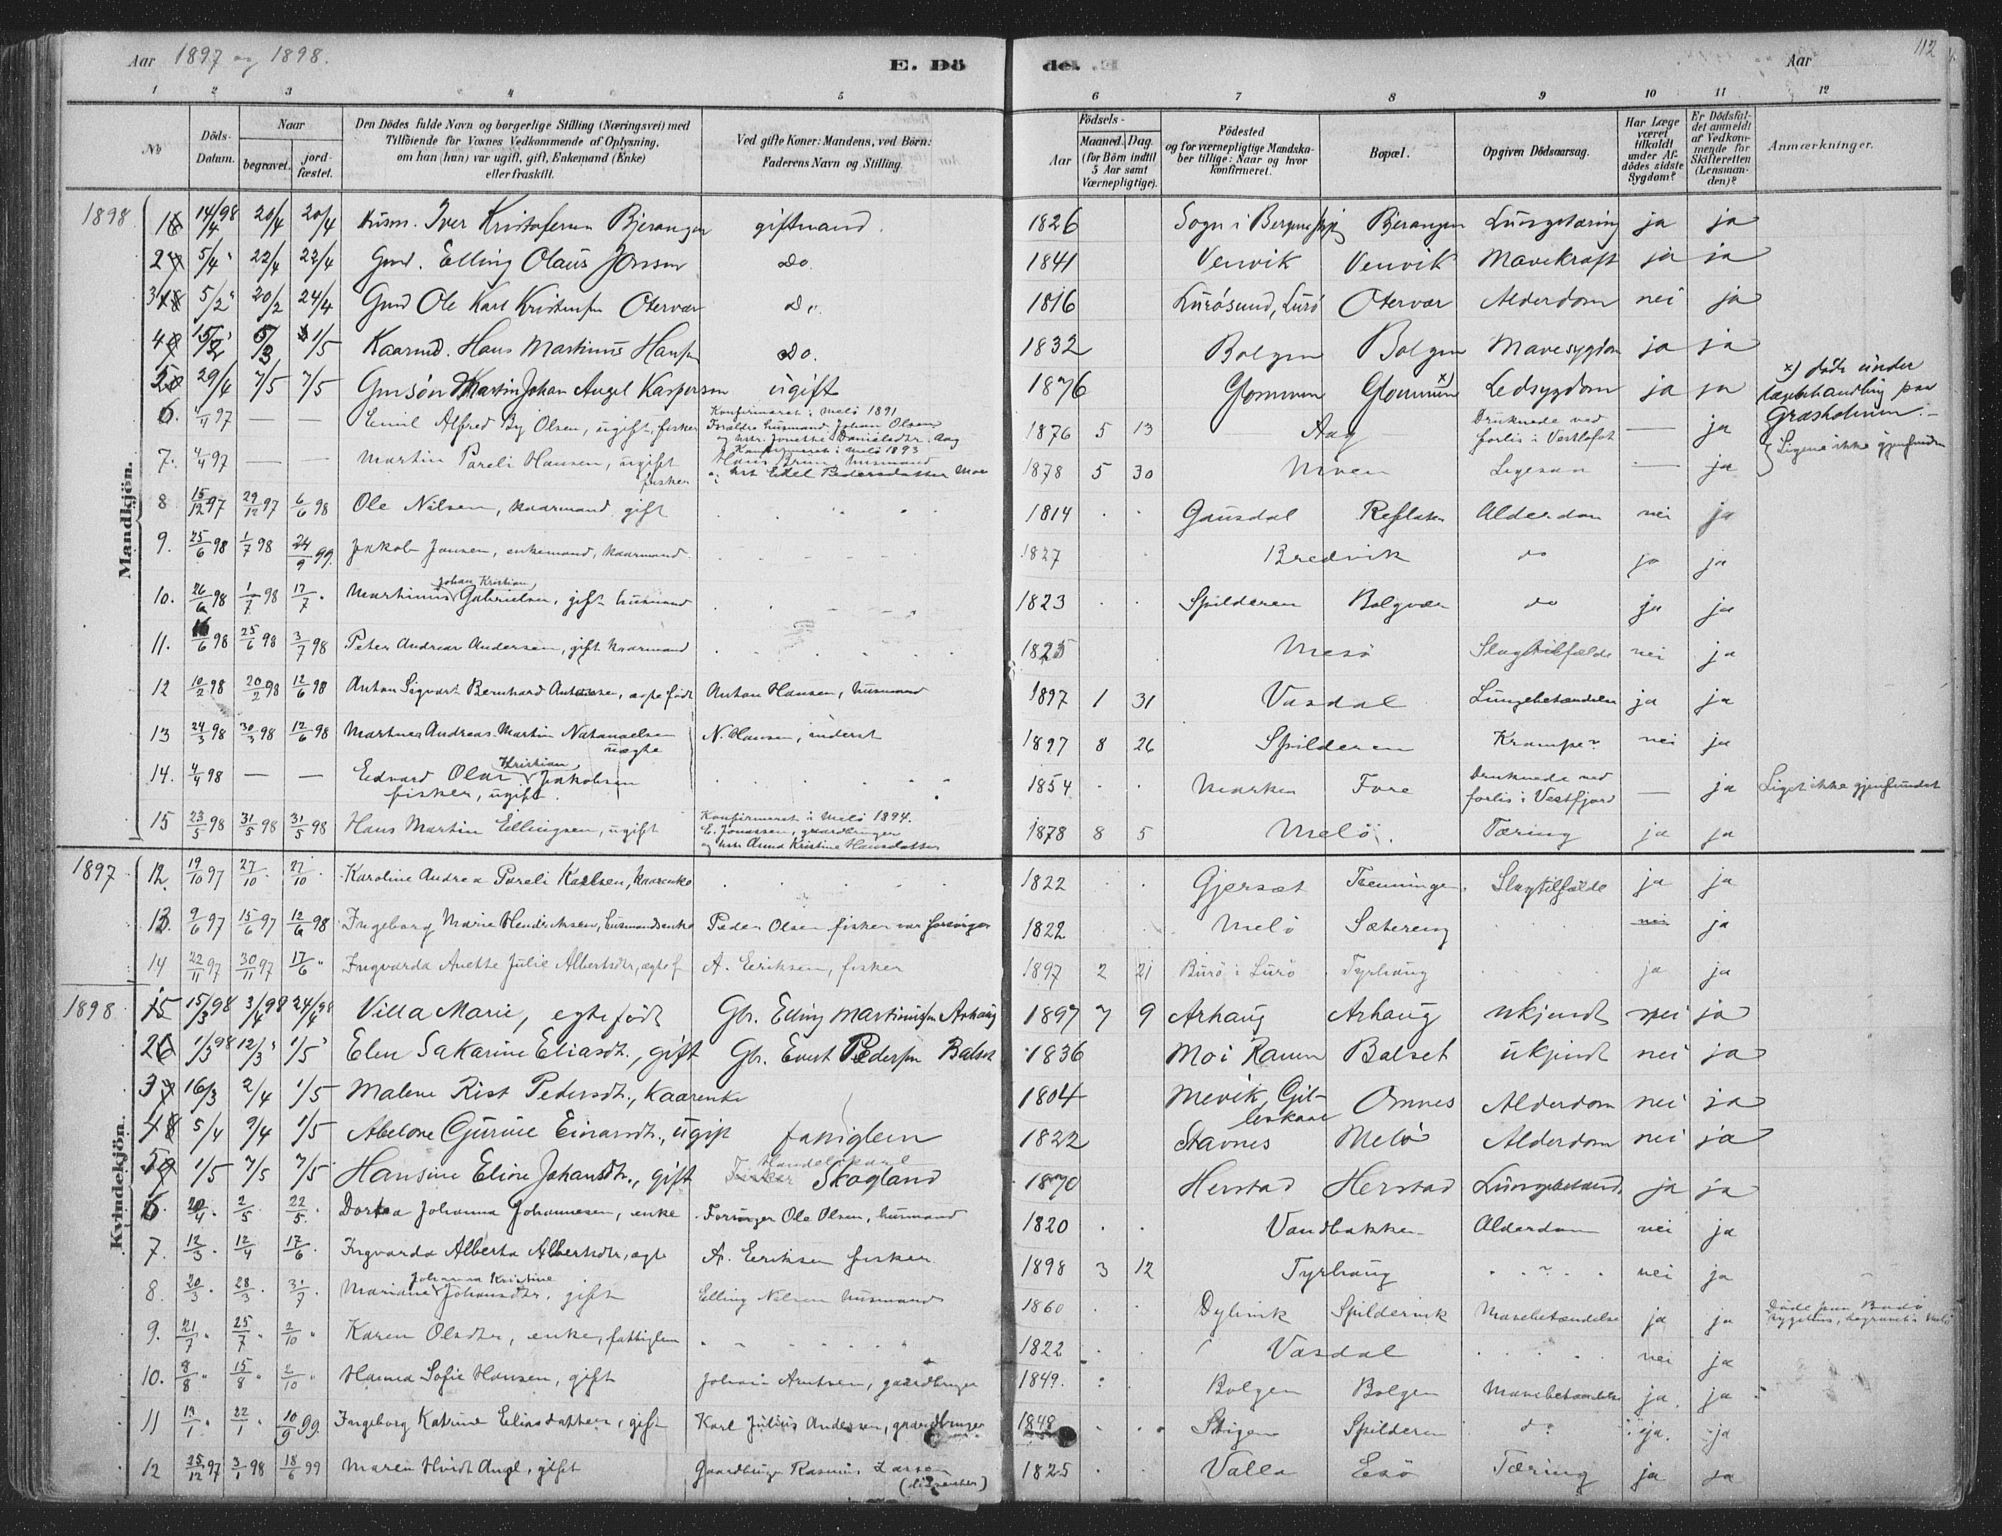 Aar 1897 og 1898. E. Dö de. Aar 112
1 2 3 4 5 6 7 8 9 10 11 12
No Döds-Datum. Naar begravet. jordfæstet. Den Dödes fulde Navn og borgerlige Stilling (Næringsvei) med Tilföiende for Voxnes Vedkommende af Oplysning, om han (hun) var ugift, gift, Enkemand (Enke) eller fraskilt. Ved gifte Koner: Mandens, ved Börn: Faderens Navn og Stilling. Födsels- Aar Maaned. Dag. (for Börn indtil 5 Aar samt Værnepligtige). Födested og for værnepligtige Mandskaber tillige: Naar og hvor konfirmeret. Bopæl. Opgiven Dödsaarsag. Har Læge været tilkaldt under Afdödes sidste Sygdom? Er Dödsfaldet anmeldt af Vedkommende for Skifteretten (Lensmanden)? Anmærkninger.
Mandkjön.
1898 1 14/4 98 20/4 20/4 Husm. Iver Kristofersen Bjerangen giftmand. 1826 Sogn i Bergens Bjerangen Lungetæring ja ja
2 5/4 " 22/4 22/4 Gmd. Elling Olaus Jonsen Do. 1841 Venvik Venvik Mavekræft ja ja
3 5/2 " 20/2 24/4 Gmd Ole Karl Kristensen Otervær Do. 1816 Lurösund, Lurö Otervær Alderdom nei ja
4 15/2 5/3 1/5 Kaarmd. Hans Martinus Hansen Do. 1832 Bolgen Bolgen Mavesygdom ja ja
5 29/4 7/5 7/5 Gmsön Martin Johan Angel Kaspersen ugift 1876 Glommen Glommen x) Ledsygdom ja ja x) döde under lægebehandling paa Græsholmen.
6. 4/4 97 — — Emil Alfred By Olsen, ugift, fisker Konfirmeret i Melö 1891 Forældre husmand Johan Olsen og hstr. Jonette Danielsdtr. Aag 1876 5 13 Aag Druknede ved forlis i Vestfjord — ja Ligene ikke gjenfundne
7. 4/4 97 — — Martin Pareli Hansen, ugift fisker Konfirmeret i Melö 1893 1878 5 30 Ligesaa — ja
8 15/12 97 29/12 97 6/6 98 Ole Nilsen, kaarmand gift 1814 Gausdal Alderdom nei ja
9. 25/6 98 1/7 98 24/9 99. Jakob Jansen, enkemand, kaarmand 1827 Bredvik do ja ja
10. 26/6 98 1/7 98 17/7 " Martinus Johan Kristian Gabrielsen, gift husmand 1823 Spilderen Bolgvær do ja ja
11. 16/6 98 25/6 98 3/7 98 Peter Andreas Andersen, gift kaarmand 1825 Mesö Slagtilfælde nei ja
12 10/2 98 20/2 98 12/6 98 Anton Sigvart Bernhard Antonsen, ægte født Anton Hansen, husmand 1897 1 31 Vasdal Lungebetændelse ja ja
13 24/3 98 30/3 98 12/6 98 Martnes Andreas Martin Natanaelsen uægte N. Hansen, inderst 1897 8 26 Spilderen Krampe nei ja
14. 4/4 98 — — Edvard Olai Kristian Jakobsen fisker, ugift. 1854 Marken Fore Druknede ved forlis i Vestfjord — ja Liget ikke gjenfundet
15 23/5 98 31/5 98 31/5 98 Hans Martin Ellingsen, ugift Konfirmeret i Melö 1894. E. Jonassen, gaardbruger og hstr Anna Kristine Hansdatter 1878 8 5 Melö. Tæring ja ja
Kvindekjön.
1897 12 19/10 97 27/10 27/10 Karoline Andrea Pareli Karlsen, kaarenke 1822 Gjersæt Tenningen Slagtilfælde ja ja
13. 9/6 97 15/6 97 12/6 98 Ingeborg Marie Hendriksen, husmandsenke Peder Olsen fisker var forsörger 1822 Melö Sætereng nei ja
14 22/11 97 30/11 97 17/6 " Ingvarda Anette Julie Albertsdtr, ægte f A. Eriksen, fisker 1897 2 21 Burö i Lurö Tyrhaug ja ja
1898 15 15/3 98 3/4 98 24/4 98 Villa Marie, egte født Gbr. Elling Martinussen Arhaug 1897 7 9 Arhaug Arhaug ukjendt nei ja
2 1/3 98 12/3 " 1/5 " Elen Sakarine Eliasdtr., gift Gbr. Evert Pedersen Balset 1836 Mo i Ranen Balset ukjendt nei ja
3 16/3 2/4 1/5 Malene Rist Pedersdtr., Kaarenke 1804 Mevik, Gilleskaal Omnes Alderdom nei ja
4 5/4 9/4 1/5 Abelone Gurine Einarsdtr., ugift fattiglem 1822 Stavnes Melö Alderdom nei ja
5 1/5 7/5 7/5 Hansine Eline Johansdtr., gift Fisker Handelskarl Skogland 1870 Herstad Herstad Lungebetænd. ja ja
6. 20/4 2/5 22/5 Dortea Johanna Johannesen, enke Forsörger Ole Olsen, husmand 1820 Vandbakken Alderdom nei ja
7. 12/3 " 12/4 17/6 " Ingvarda Alberta Albertsdtr, ægte A. Eriksen fisker 1898 3 12 Tyrhaug nei ja
8. 20/3 " 28/3 " 31/7 " Mariane Johanna Kristine Johansdtr. gift Elling Nilsen husmand 1860 Dybvik Spildervik Mavebetændelse ja ja Döde paa Bodö sygehus, begravet i Melö
9. 21/7 " 25/7 " 2/10 " Karen Olsdtr, enke, fattiglem 1822 Vasdal nei ja
10. 8/8 " 15/8 " 2/10 " Hanna Sofie Hansen, gift Johan Arntsen, gaardbruger 1849. Bolgen Bolgen Mavebetændelse ja. ja
11 13/1 " 22/1 " 10/9 99. Ingeborg Katrine Eliasdatter, gift Karl Julius Andersen, gaardbruger 1848 Skigen Spilderen do ja. ja
12 25/12 97 3/1 98 18/6 99 Maren Hvidt Angel, gift Gaardbruger Rasmus Larsen (dissenter) 1825 Valla Esö Tæring ja ja